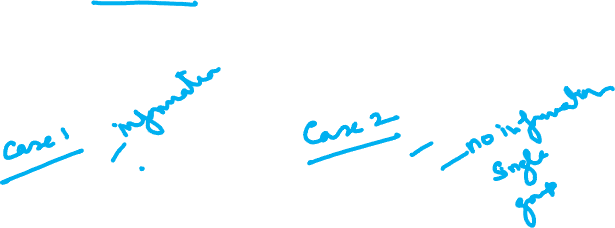 Case 1 information
Case 2 no information
single
group